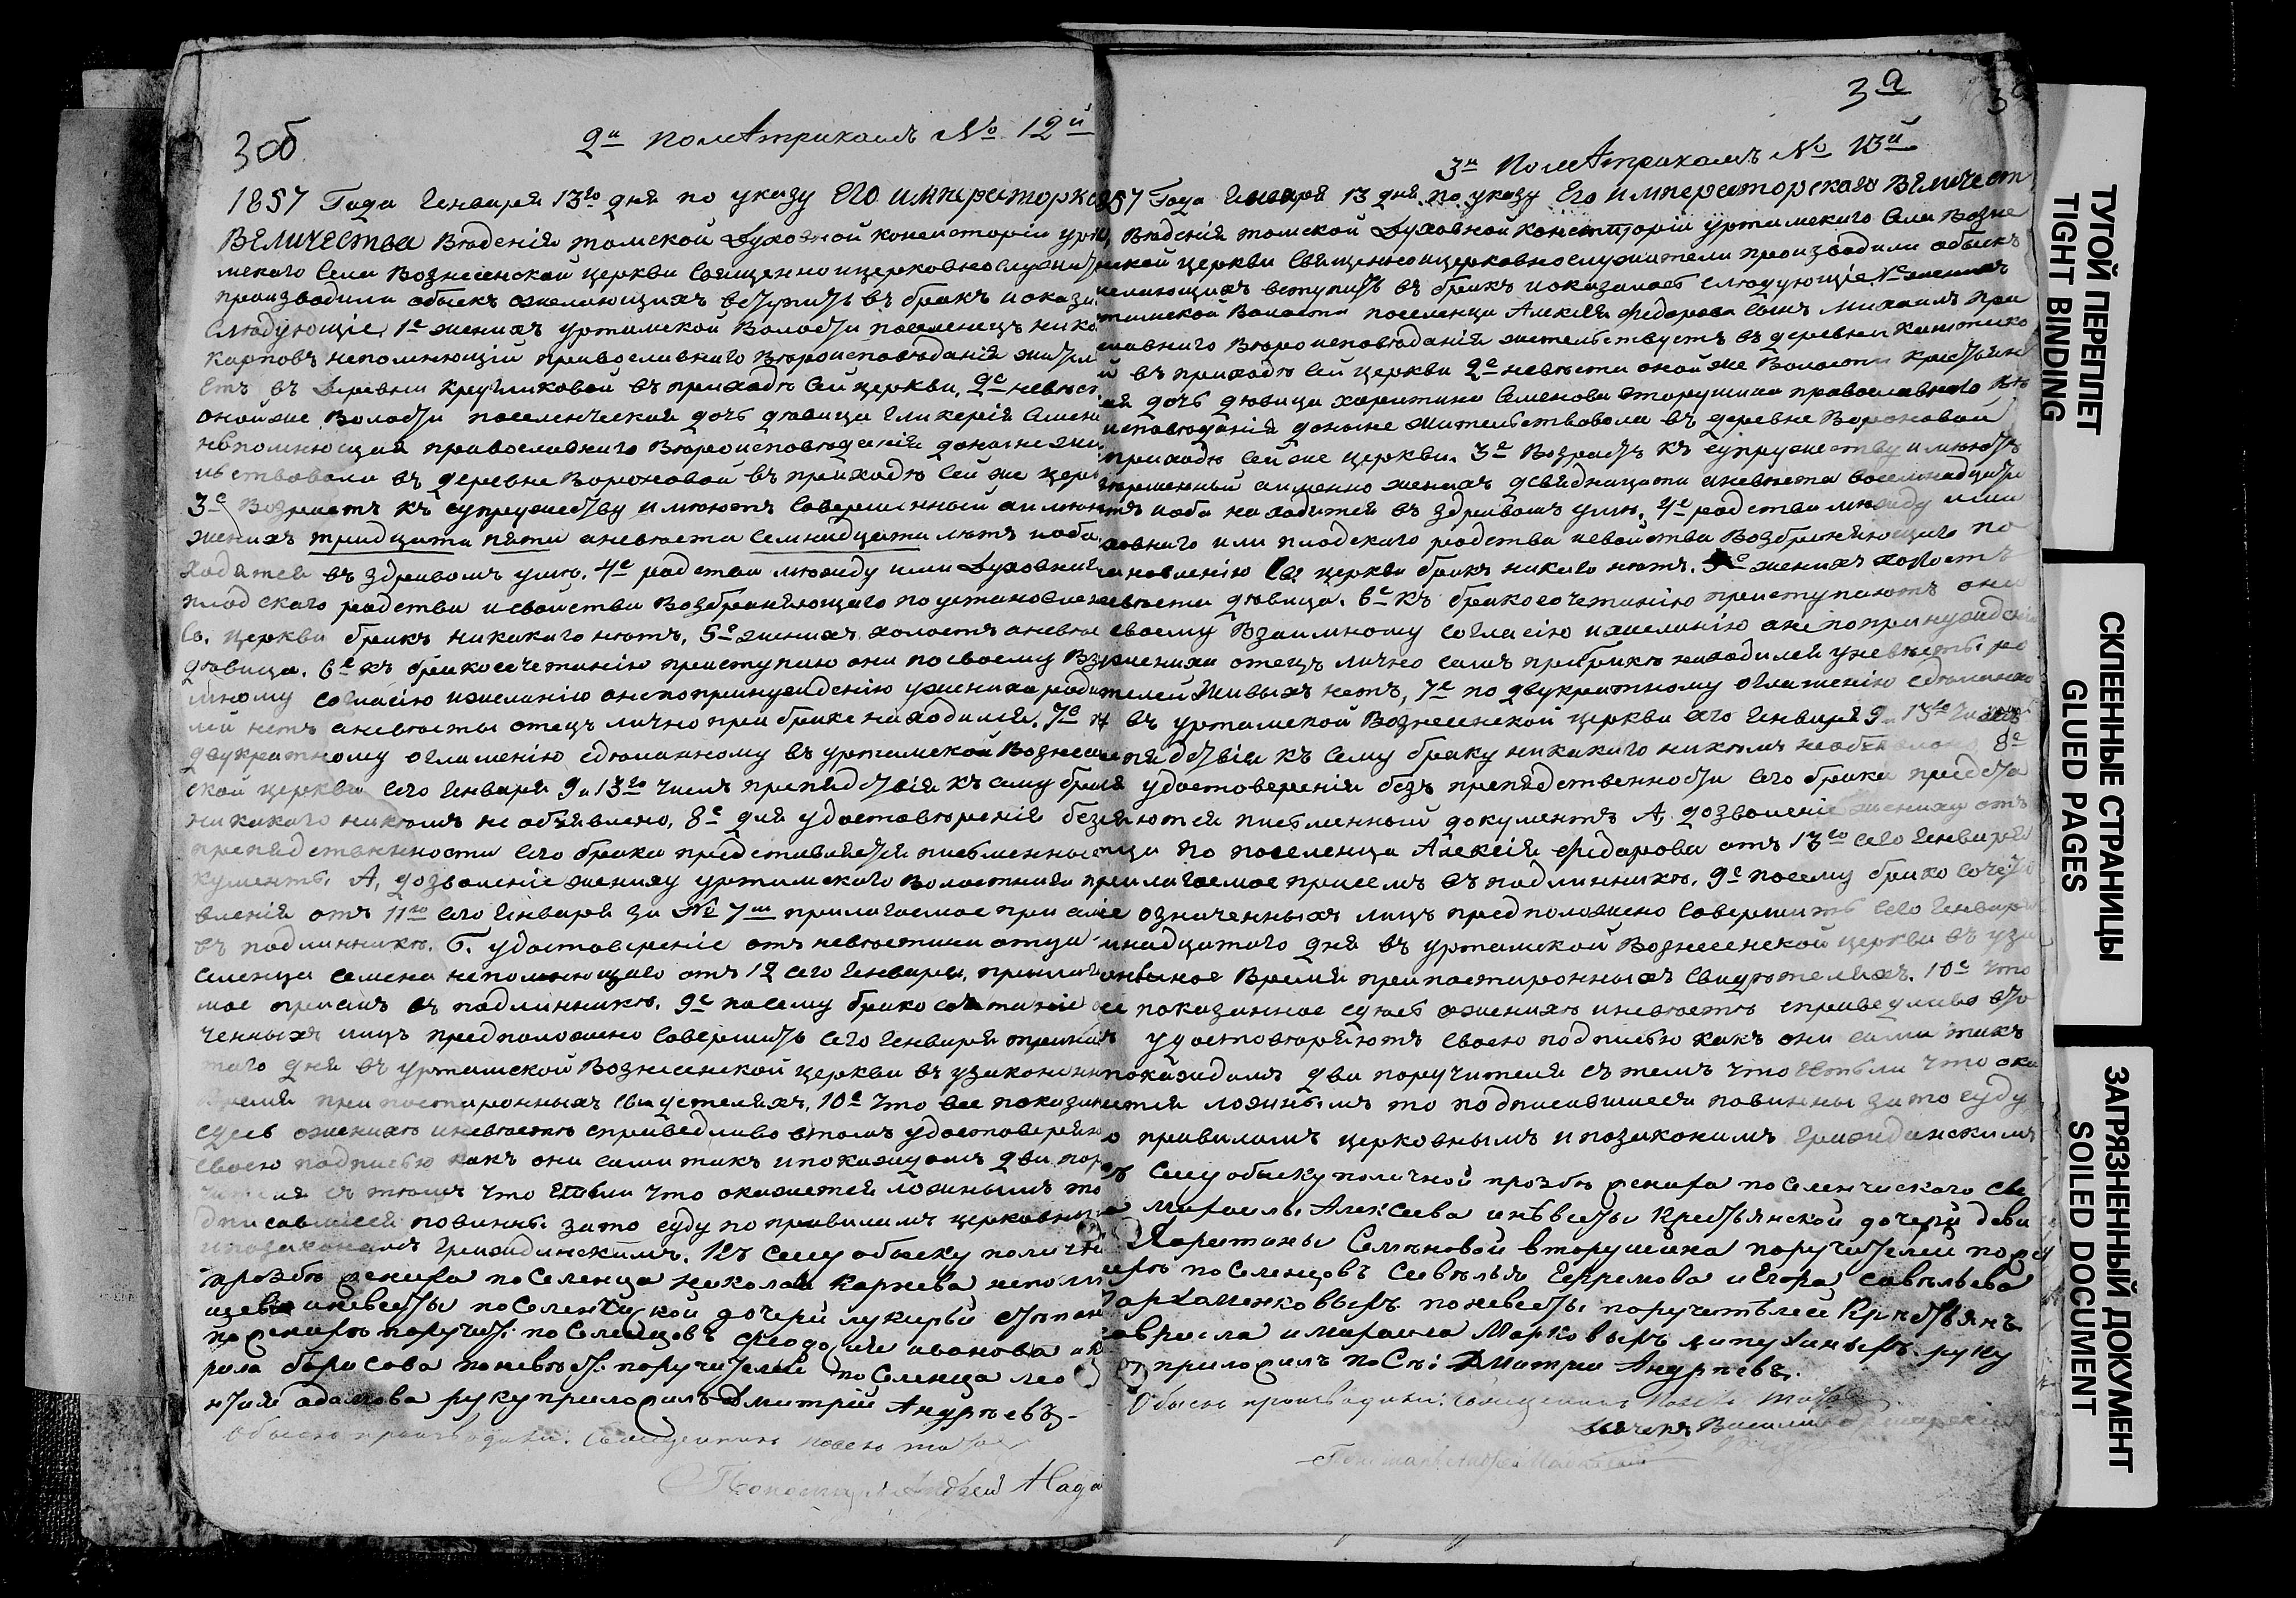 3об
2й По метрикамъ № 12й
1857 Года Генваря 13го дня по указу ЕГО императорск
ВЕЛИЧЕСТВА Вѣденія томской Духовной консисторіи урт
мскаго Села Вознесенской церкви Священно и церковнослужит
производили обыскъ о желающихъ вступить въ бракъ и оказа
Слѣдующіе, 1е женихъ уртамской Волости поселенецъ нико
Карповъ непомнющій православнаго Вѣроисповѣданія жител
етъ въ Деревни Кругликовой въ приходѣ Сей церкви, 2е невѣст
оной же Волости поселенческая дочь дѣвица Гликерія Семен
непомнющая православнаго Вѣроисповѣданія доныне жи
льствовала въ деревне Вороновой въ приходѣ Сей же церк
3е Возрастъ къ супружеству имѣютъ Совершенный аимен
женихъ тридцати пяти аневѣста семнадцати лѣтъ иоба
ходятся въ здравомъ умѣ. 4е родства мѣжду ими Духовнаг
плодскаго родства исвойства Возбраняющаго поустановлен
Со. церкви бракъ никакаго нѣтъ, 5е женихъ холостъ аневѣс
дѣвица. 6е къ бракосочетанію приступаю они посвоему Вза
мному согласію ижеланію анепопринужденію ужениха роди
лей нетъ аневѣсты отецъ лично при браке находился. 7е п
двукратному оглашенію сдѣланному въ уртамской Вознесен
ской церкви сего Генваря 9 и 13го чиселъ препядствія къ сему бра
никакаго никѣмъ не объявлено, 8е для удостовѣренія без
препядственности сего брака представляется письменные
кументы. А, дозволеніе жениху уртамскаго Волостнаго пр
вленія отъ 11го сего Генваря за № 7м прилагаемое при сем
въ подлинникѣ. Б. удостовереніе отъ невѣстина отца
селенца семена непомнющаго отъ 12 сего Генваря, прилага
мое присемъ въ подлинникѣ. 9е посему брако сочетаніе о
ченныхъ лицъ предположено Совершить сего Генваря трина
таго дня въ уртамской Вознесенской церкви въ узаконен
Время при постаронныхъ свидетеляхъ, 10е что все показан
сдесь ожинихѣ иневѣстѣ справедливо втомъ удостоверяю
своею подписью какъ они сами такъ ипокаждомъ два пор
чителя съ тѣмъ что Естьли что окажется ложнымъ то
дписавшіеся повинны зато суду по правиламъ церковны
ипозаконамъ Гражданскимъ. Къ сему обыску полич
прозбѣ жениха поСеленца николая Карпева непом
щева иневесты поСеленческой дочери лукерьи стпан
пожениху поручит: поСеленцовъ феодосия иванова и
рила борисова поневѣст: поручителей поСеленца лео
нтия адамова руку приложилъ Дмитрій Андреевъ.
Обыскъ производили: Священникъ
Пономарь Андрей Над
3а
3й По метрикамъ № 13й
857 Года Генваря 13 дня по указу Его императорскаго ВЕличест
Вѣденія томской Духовной консисторіи уртамскаго Села Возне
нской церкви Священно ицерковнослужители производили обыскъ
желающихъ вступить въ бракъ иоказалось слѣдующіе. 1е женихъ
тамской Волости поселенца Алексія Федорова сынъ михаилъ пра
славнаго Вѣроисповѣданія жительствуетъ въ деревни
й въ приходѣ сей церкви 2е невѣста оной же Волости крестьянс
ая дочь дѣвица харитина Семенова вторушина православнаго Вѣ
исповѣданія доныне жительствовала въ деревне Вороновой
приходѣ сей же церкви. 3е Возрастъ къ супружеству имѣютъ
вершенный аименно женихъ двѣдцати аневѣста восемнадцати
тъ иоба находятся въ здравомъ умѣ. 4е родства мѣжду ими
ховнаго или плодскаго родства исвойства Возбраняющаго по
ановленію Св церкви бракъ никаго нѣтъ. 5е женихъ холостъ
евѣста дѣвица. 6е къ бракосочетанію приступаютъ они
своему Взаимному согласію ижеланію анепопринужденію
жениха отецъ лично самъ прибракѣ находился уневѣсты ро
телей живыхъ нетъ, 7е по двукратному оглашенію сдѣланно
въ уртамской Вознесенской церкви сего Генваря 9 и 13го чиселъ
пядствія къ сему браку никакаго никѣмъ необъявлено 8е
я удостоверенія безъ препядственности сего брака предста
яются письменный документъ А, дозволеніе жениху отъ
тца по поселенца Алексія Федорова отъ 13го сего Генваря
прилагаемое присемъ въ подлинникѣ. 9е посему брако сочета
іе означенныхъ лицъ предположено Совершить сего Генваря
инадцатого дня въ уртамской Вознесенской церкви въ уза
онѣное Время припостаронныхъ свидѣтеляхъ. 10е что
се показанное сдесь ожинихѣ иневѣстѣ справедливо вто
ъ удостовѣряютъ своею подписью какъ они сами такъ
покаждомъ два поручителя стемъ что Естьли что ока
жется ложнымъ то подписавшіеся повинны зато суду
о правиламъ церковнымъ ипозаконамъ Гражданскимъ
ъ Сему обыску поличной прозбѣ жениха поСеленческаго сы
а михаилы Алексеева инѣвесты Крестьянской дочери деви
Харитины Семѣновой вторушина поручителей пожен
ихѣ поСеленцовъ Савелья Ефремова иЕгора савельева
архаменковыхъ поневесты поручитѣлей Крестьянъ
авриила имихаила Марковыхъ липухиныхъ руку
приложилъ поСе: Дмитри Андреевъ.
Обыскъ производили: Священникъ
Дьячекъ Василий
Пономарь Андрей
ТУГОЙ ПЕРЕПЛЕТ
TIGHT BINDING
СКЛЕЕННЫЕ СТРАНИЦЫ
GLUED PAGES
ЗАГРЯЗНЕННЫЙ ДОКУМЕНТ
SOILED DOCUMENT